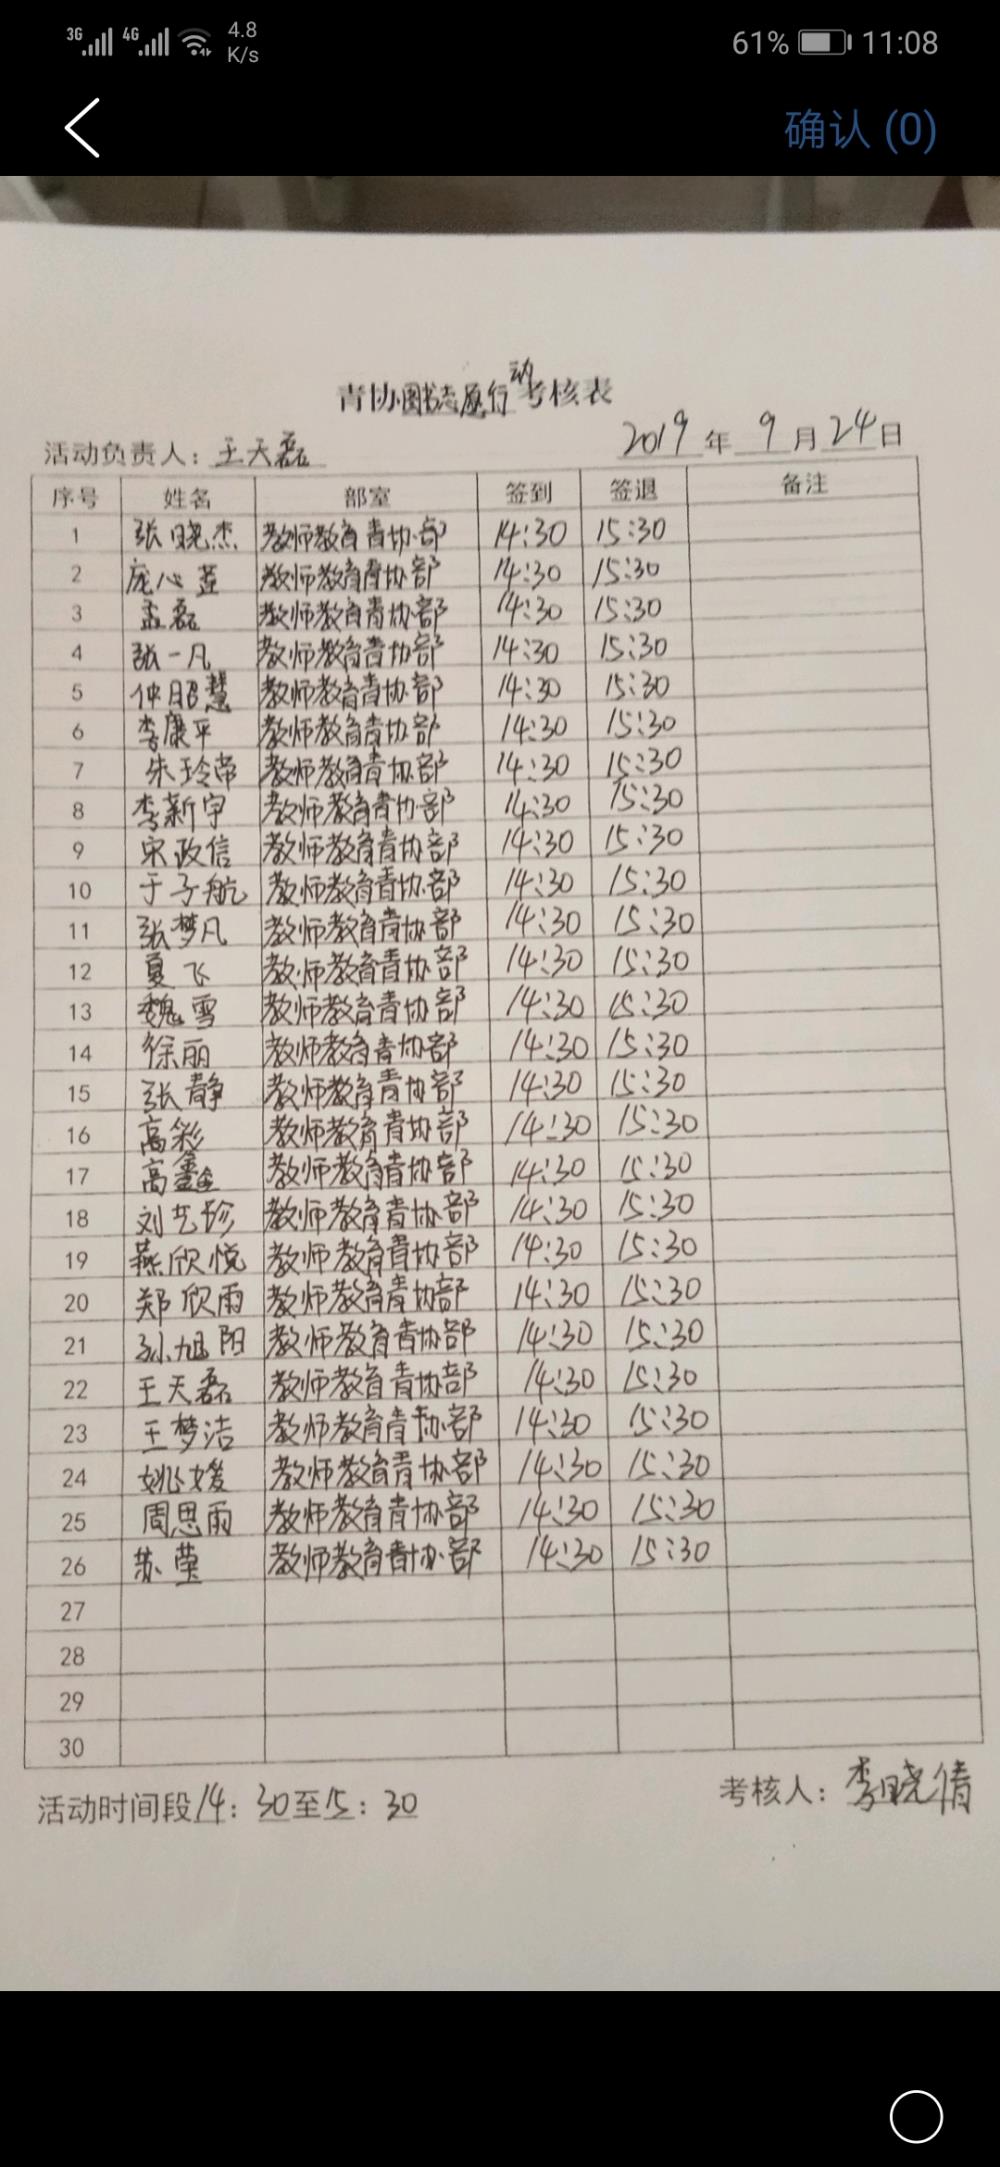 3G 4G 4.8 K/s 61% 11:08
确认 (0)
青协图书志愿行动考核表
活动负责人：王天磊 2019年9月24日
序号 姓名 部室 签到 签退 备注
1 张晓杰 教师教育青协部 14:30 15:30
2 庞心蓝 教师教育青协部 14:30 15:30
3 孟磊 教师教育青协部 14:30 15:30
4 张一凡 教师教育青协部 14:30 15:30
5 仲昭慧 教师教育青协部 14:30 15:30
6 李康平 教师教育青协部 14:30 15:30
7 朱玲帝 教师教育青协部 14:30 15:30
8 李新宇 教师教育青协部 14:30 15:30
9 宋政信 教师教育青协部 14:30 15:30
10 于子航 教师教育青协部 14:30 15:30
11 张梦凡 教师教育青协部 14:30 15:30
12 夏飞 教师教育青协部 14:30 15:30
13 魏雪 教师教育青协部 14:30 15:30
14 徐丽 教师教育青协部 14:30 15:30
15 张静 教师教育青协部 14:30 15:30
16 高彩 教师教育青协部 14:30 15:30
17 高鑫 教师教育青协部 14:30 15:30
18 刘艺珍 教师教育青协部 14:30 15:30
19 燕欣悦 教师教育青协部 14:30 15:30
20 郑欣雨 教师教育青协部 14:30 15:30
21 孙旭阳 教师教育青协部 14:30 15:30
22 王天磊 教师教育青协部 14:30 15:30
23 王梦洁 教师教育青协部 14:30 15:30
24 姚媛 教师教育青协部 14:30 15:30
25 周思雨 教师教育青协部 14:30 15:30
26 苏莹 教师教育青协部 14:30 15:30
27
28
29
30
活动时间段14：30至15：30 考核人：李晓倩